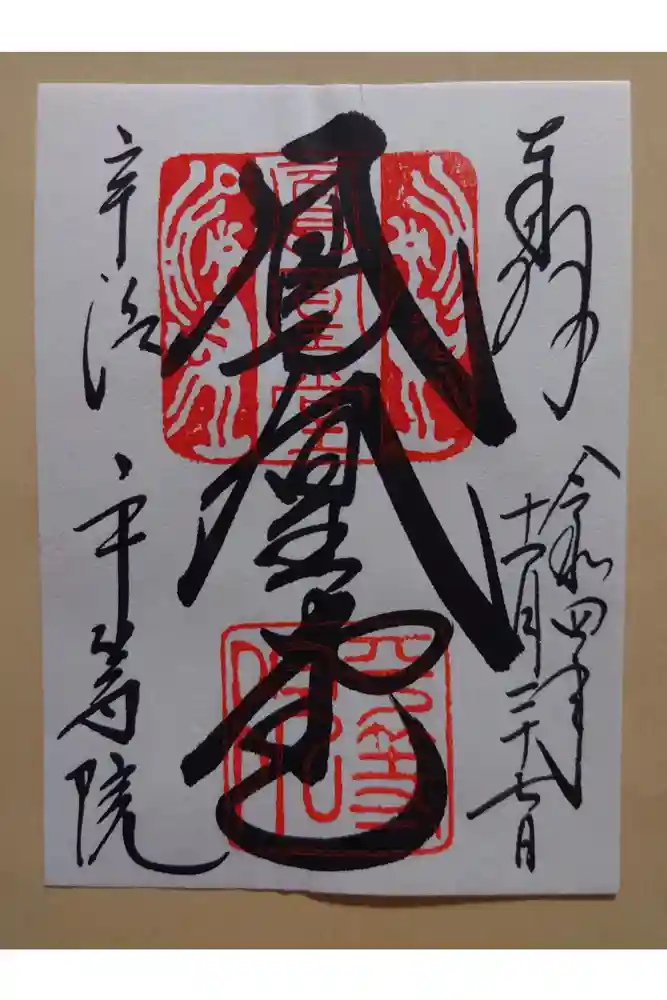 奉拝
令和四年
十一月二十七日
鳳凰堂
鳳凰堂
宇治
平等院